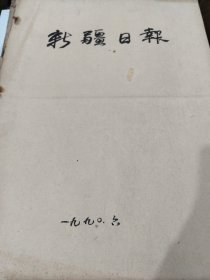 新疆日報
一九九〇.六